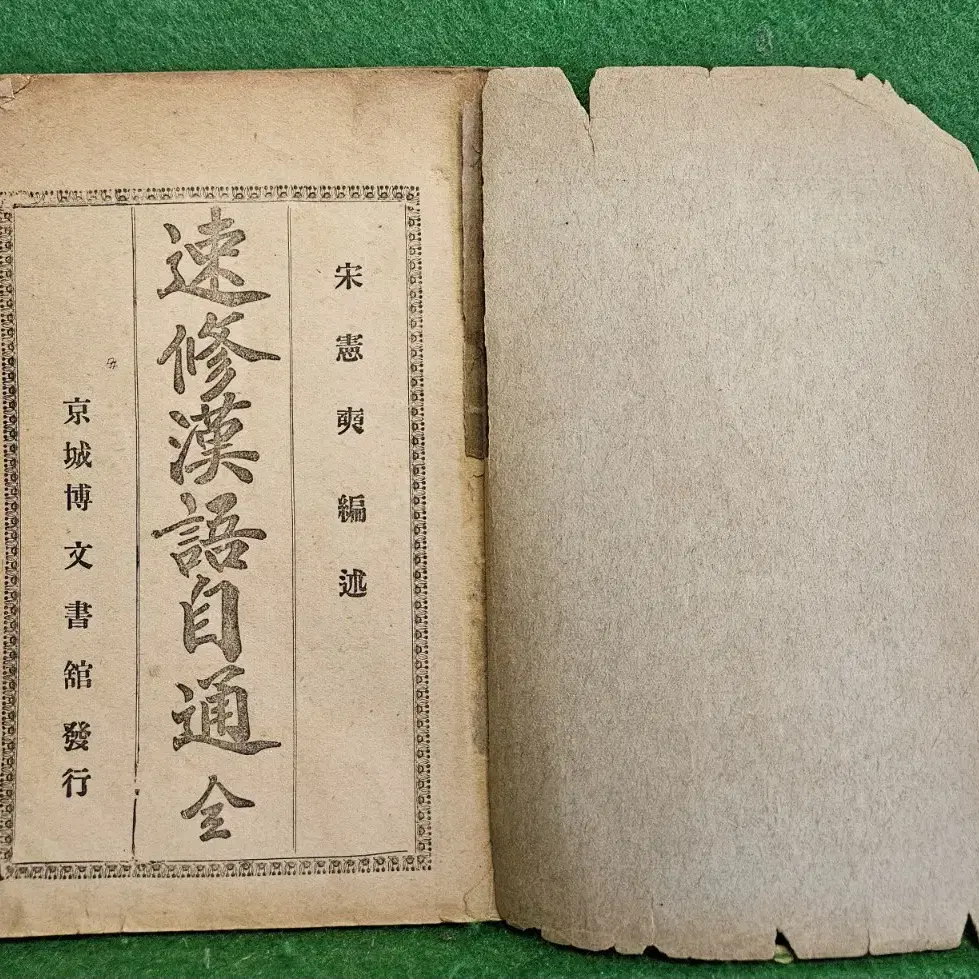 宋憲奭編述
速修漢語自通 全
京城博文書舘發行